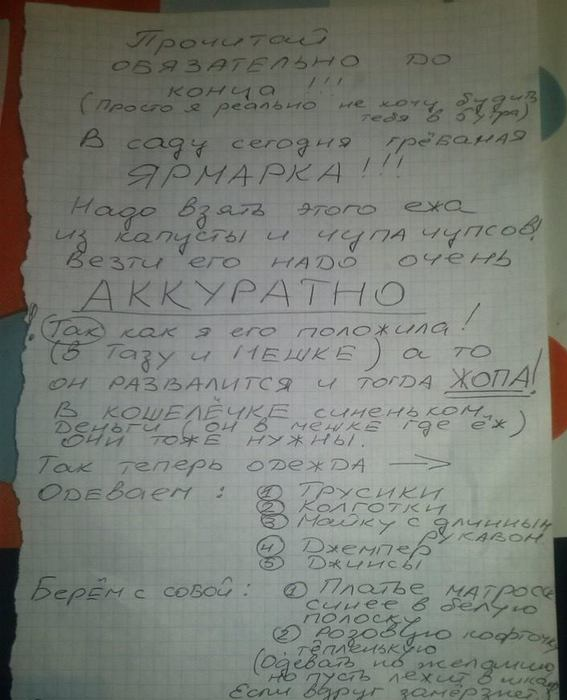 Прочитай
ОБЯЗАТЕЛЬНО ДО
КОНЦА !!!
(Просто я реально не хочу будить
тебя в 6 утра)
В саду сегодня грёбаная
ЯРМАРКА!!!
Надо взять этого ежа
из капусты и чупа чупсов!
Везти его НАДО очень
АККУРАТНО
! Так как я его положила!
(В Тазу и МЕШКЕ) а то
он РАЗВАЛИТСЯ и тогда ЖОПА!
В КОШЕЛЁЧКЕ синеньком
деньги (он в мешке где ёж)
они тоже нужны.
Так теперь одежда →
Одеваем: ① Трусики
② Колготки
③ Майку с длинным
рукавом
④ Джемпер
⑤ Джинсы
Берём с собой: ① Платье матроса
синее в белую
полоску
② Розовую кофточку
тёпленькую
(Одевать по желанию
но пусть лежит в шкафу
Если вдруг замёрзнет